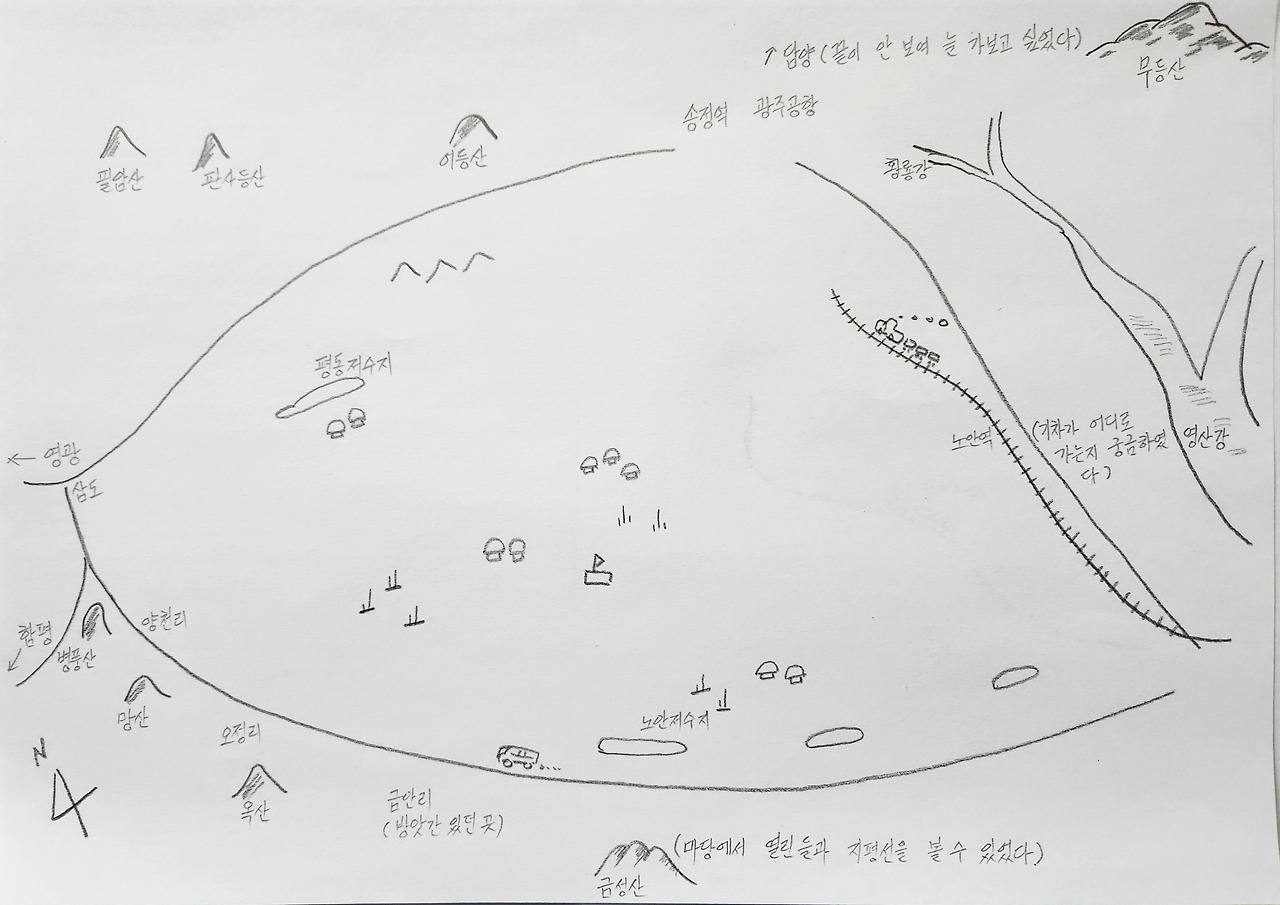 ↑ 담양 (끝이 안 보여 늘 가보고 싶었다)
무등산
송정역 광주공항
어등산
황룡강
필암산
판사등산
평동저수지
← 영광
삼도
노안역
(기차가 어디로
가는지 궁금하였
다)
영산강
함평
병풍산
양천리
망산
오정리
노안저수지
N
옥산
금안리
(방앗간 있던 곳)
금성산
(마당에서 열린들과 지평선을 볼 수 있었다)